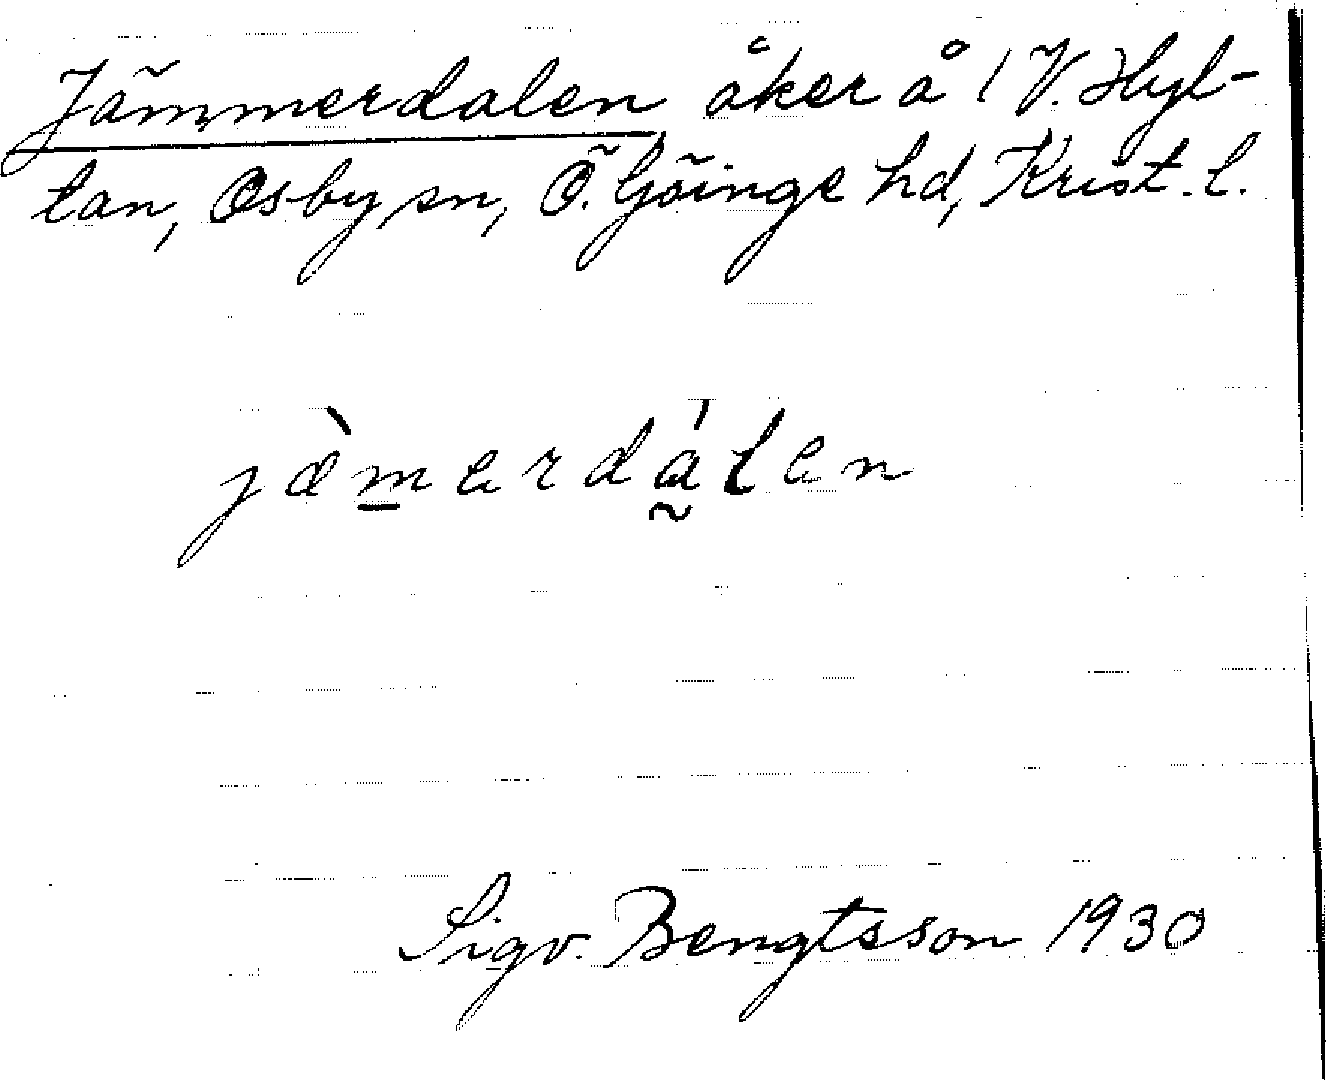 Jämmerdalen åker å 1 V. Hyl-
tan, Osby sn, Ö. Göinge hd, Krist. l.
jæ̀m̲erdá̰len
Sigv. Bengtsson 1930